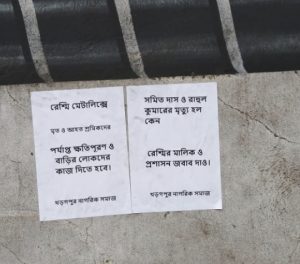 রেশ্মি মেটালিক্সে
মৃত ও আহত শ্রমিকদের
পর্যাপ্ত ক্ষতিপূরণ ও
বাড়ির লোকদের
কাজ দিতে হবে।
খড়গপুর নাগরিক সমাজ
সমিত দাস ও রাহুল
কুমারের মৃত্যু হল
কেন
রেশ্মির মালিক ও
প্রশাসন জবাব দাও।
খড়গপুর নাগরিক সমাজ